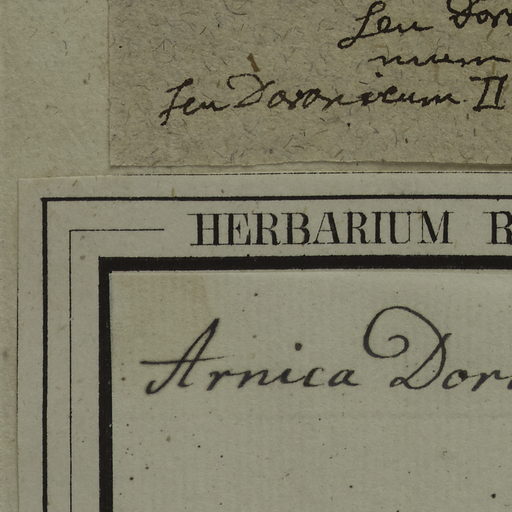 seu Doro
nium
seu Doronicum II
HERBARIUM R
Arnica Dor